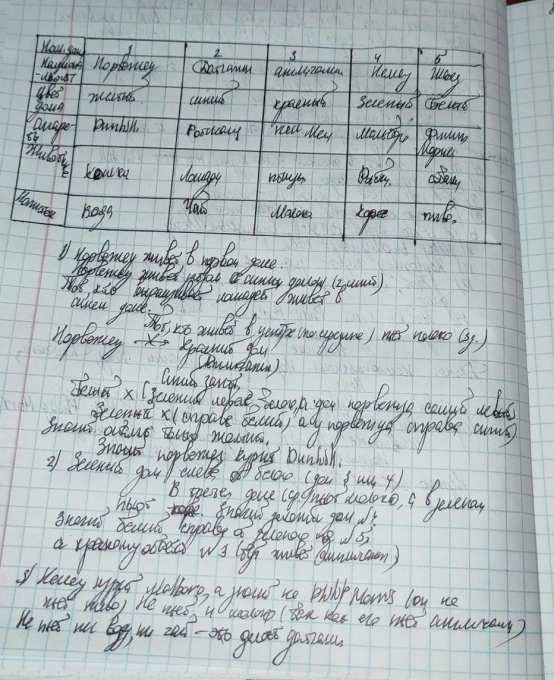 Ном. дома 1 2 3 4 5
Норвежец Датчанин англичанин Немец Швед
Цвет дома жёлтый синий красный Зеленый Белый
Сигареты Dunhill Ротманс Пел Мел Мальборо Филип Морис
Животные кошка Лошадь птица Рыбки собака
Напиток Вода Чай Молоко кофе пиво.
1) Норвежец живёт в первом доме.
Норвежец живёт рядом с синим домом (2, синий)
Тот кто выращивает лошадей живёт в
синем доме.
Тот, кто живёт в центре (по середине) пьёт молоко (3).
Норвежец красный дом
(англичанин)
Синий занят,
Белый х (Зеленый левее белого, а дом норвежца самый левый)
Зеленый х (справа белый, а у норвежца справа синий)
Значит остался только жёлтый.
Значит норвежец курит Dunhill.
2) Зеленый дом слева от белого (дом 3 или 4)
В третьем доме пьют молоко, а в зеленом
пьют кофе значит зеленый дом №4
Значит белый справа а зеленого №5,
а красному №3 (где живёт англичанин)
3) Немец курит Marlboro, а значит не Philip Morris (он не
пьёт пиво) Не пьёт и молоко (так как его пьёт англичанин)
Не пьёт ни воду, ни чай - это делает датчанин